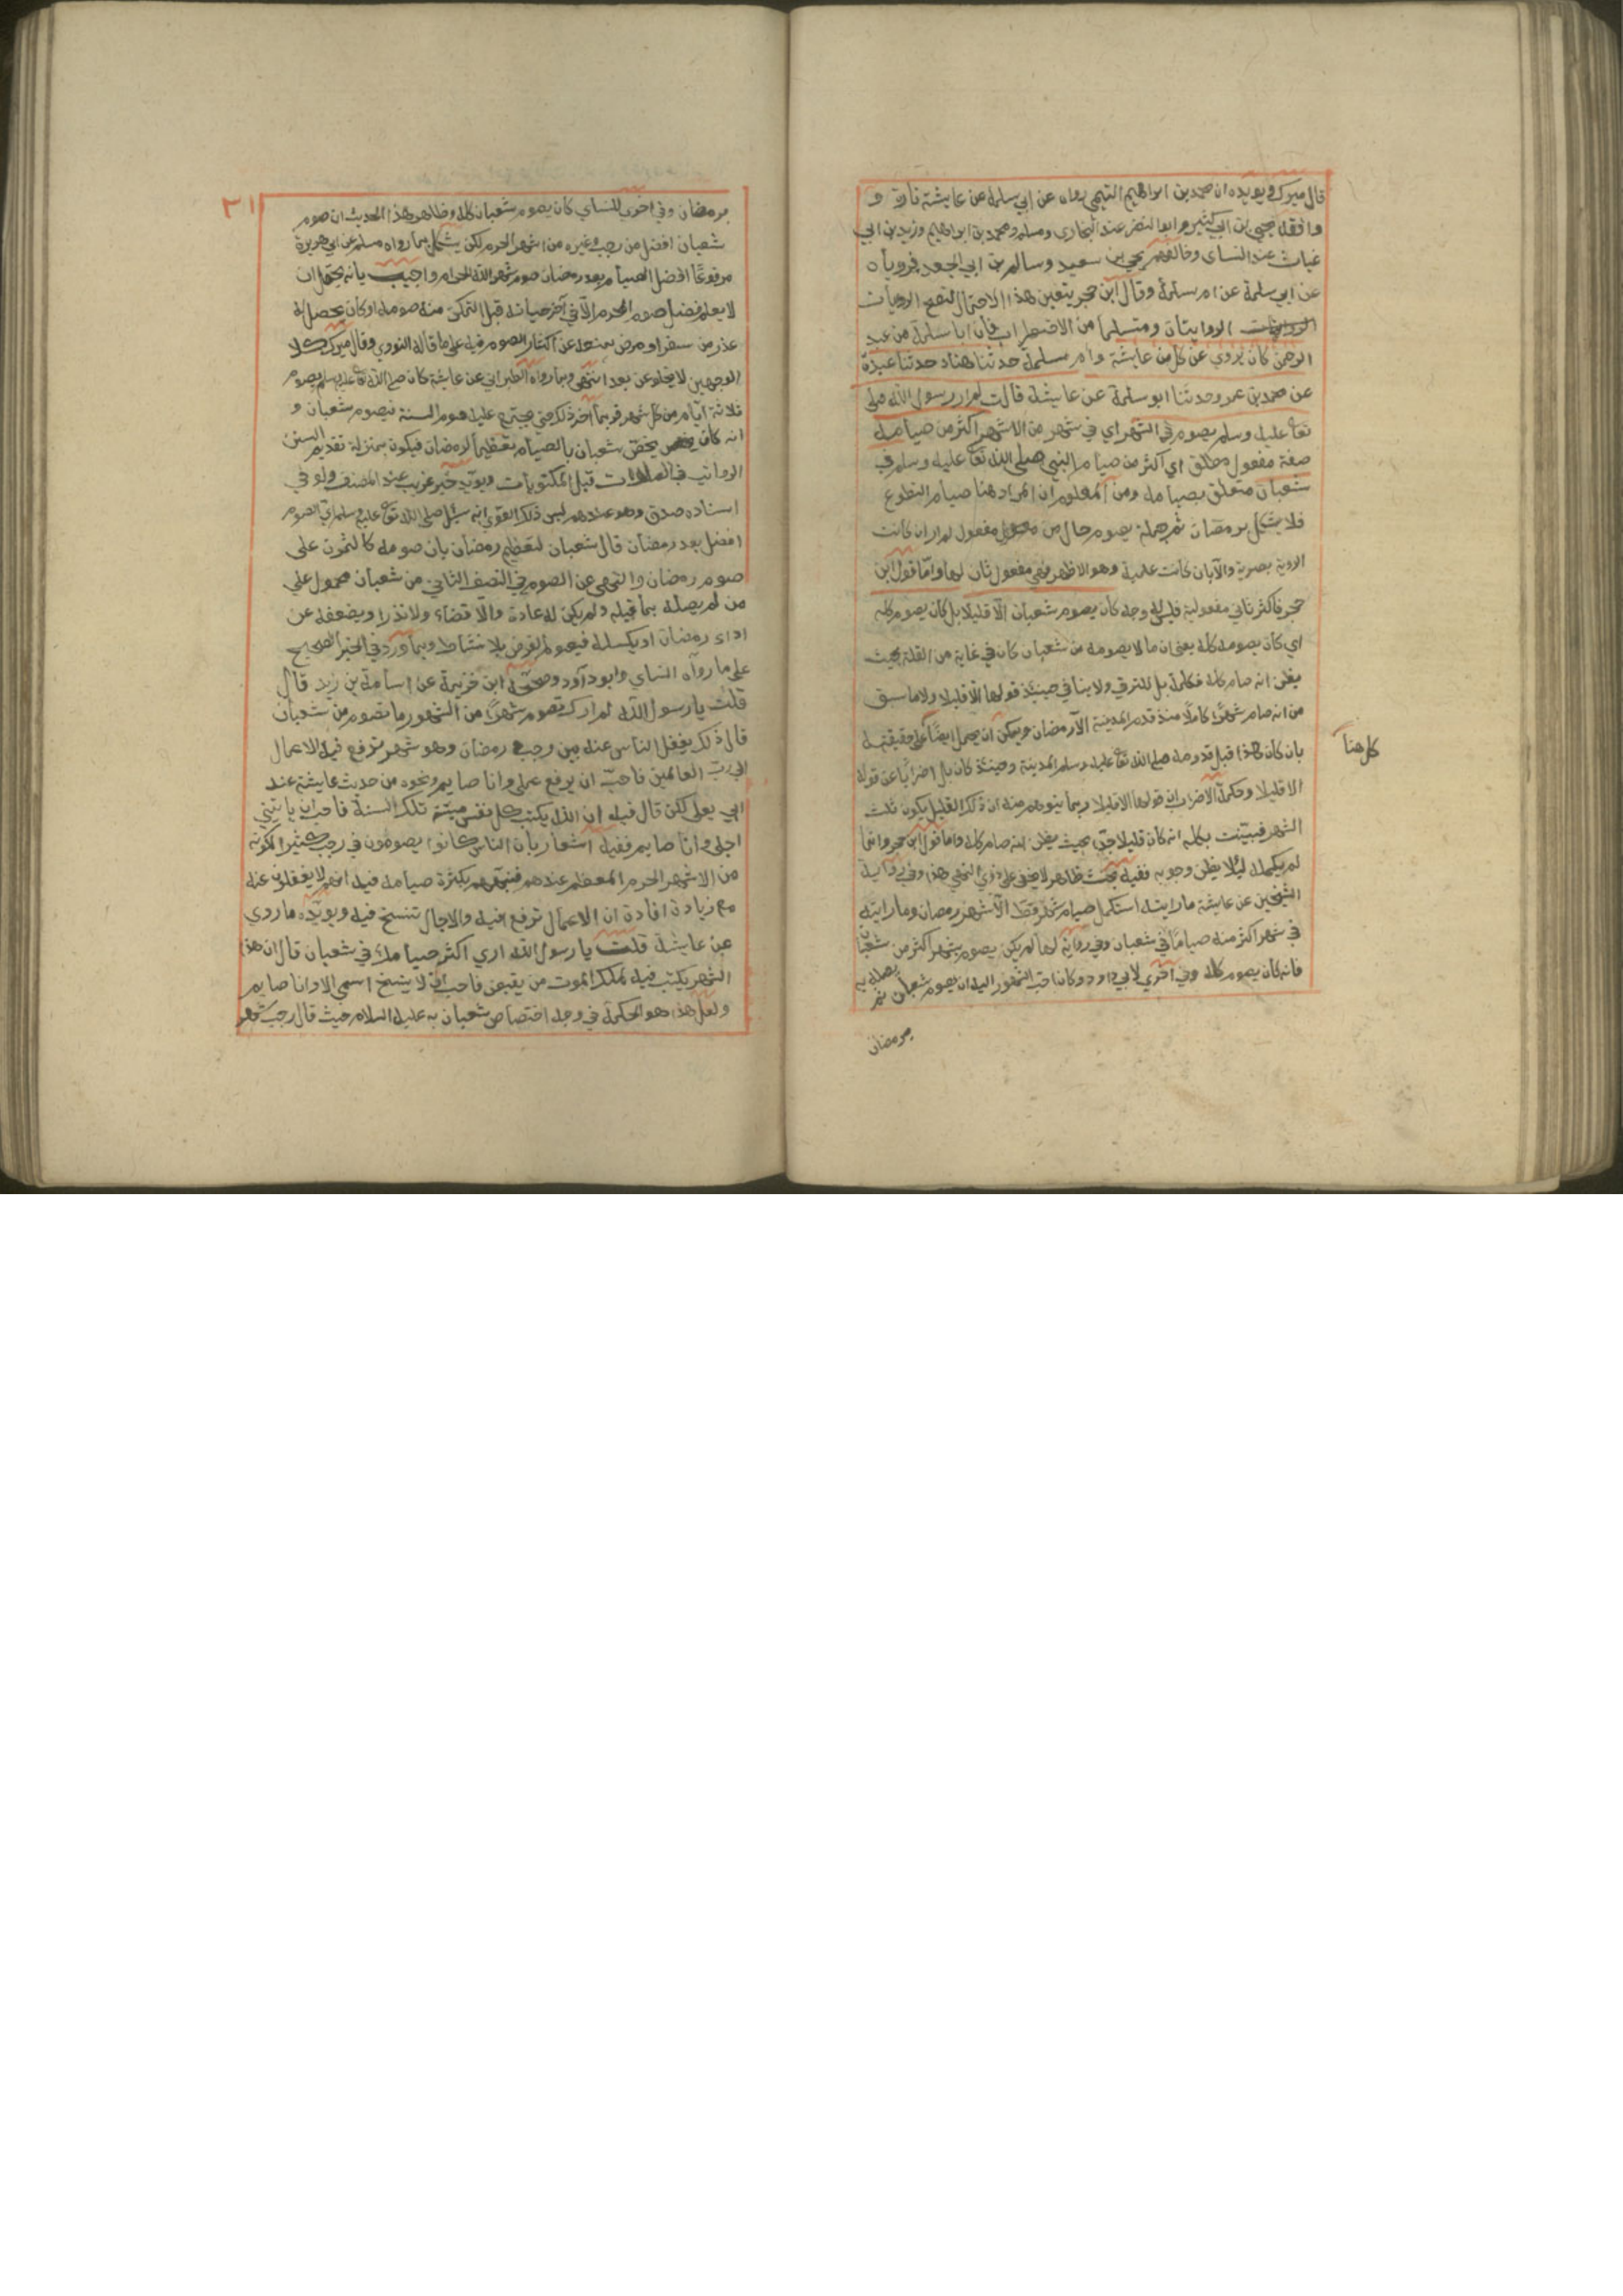 قال ميرك ويويده ان محمد بن ابراهيم التيمي رواه عن ابي سلمة عن عايشة تارة و
وافقه يحيى بن ابي كثير وابوالنضر عند البخاري ومسلم ومحمد بن ابراهيم وزيد بن ابي
غياث عند النساى وخالفهم يحيى بن سعيد وسالم بن ابي الجعد فروياه
عن ابي سلمة عن ام سلمة وقال ابن حجر يتعين هذا الاحتمال لتصح الروايات
الروايتان ومتسلما من الاضطراب فان ابا سلمة من عبد
الرحمن كان يروي عن كل من عايشة وام سلمة حدثنا هناد حدثنا عبدة
عن محمد بن عمرو حدثنا ابو سلمة عن عايشة قالت لم ار رسول الله صلى
تعا عليه وسلم يصوم في الشهر اي في شهر من الاشهر اكثر من صيامه
صفة مفعول مطلق اي اكثر من صيام النبي صلى الله تعا عليه وسلم في
شعبان متعلق بصيامه ومن المعلوم ان المراد هنا صيام التطوع
فلا يشكل برمضان ثم جملة يصوم حال من مفعول لم ار ان كانت
الروية بصرية والا بان كانت علمية وهو الاظهر فهي مفعول ثان لها واما قول ابن
حجر فاكثر ثاني مفعوليه فليس له وجه كان يصوم شعبان الا قليلا بل كان يصوم كله
اي كان يصومه كله يعنى ان ما لا يصومه من شعبان كان في غاية من القلة بحيث
يظن انه صام كله فكلمة بل للترقي ولا ينافي حينئذ قولها الا قليلا ولا ما سبق
من انه صام شهرا كاملا منذ قدم المدينة الا رمضان ويمكن ان يحمل ايضا على حقيقته
كل هنا
بان كان هذا قبل قدومه صلى الله تعا عليه وسلم المدينة وحينئذ كان بل اضرابا عن قوله
الا قليلا وحكمة الاضراب ان قولها الا قليلا ربما يتوهم منه ان ذلك القليل يكون ثلث
الشهر فبينت بكله انه كان قليلا جدا بحيث يظن انه صام كله واما قول ابن حجر وانما
لم يكمله ليلا يظن وجوبه ففيه بحث ظاهر لا يخفى على ذوي النهى هذا وفي رواية
الشيخين عن عايشة ما رايته استكمل صيام شهر قط الا شهر رمضان وما رايته
في شهر اكثر منه صياما في شعبان وفي رواية لهما لم يكن يصوم شهرا اكثر من شعبان
فانه كان يصوم كله وفي اخرى لابي داود وكان احب الشهور اليه ان يصوم شعبان ثم يصله به
برمضان
٣١
برمضان وفي اخرى للنساي كان يصوم شعبان كله وظاهر هذا الحديث ان صوم
شعبان افضل من رجب وغيره من اشهر الحرم لكن يشكل بما رواه مسلم عن ابي هريرة
مرفوعا افضل الصيام بعد رمضان صوم شهر الله الحرام واجيب بانه يحتمل ان
لا يعلم فضل صوم المحرم الا في آخر حياته قبل التمكن منه صومه او كان يحصل له
عذر من سفر او مرض يمنعه عن اكثار الصوم فيه على ما قاله النووي وقال ميرك كلا
الوجهين لا يخلو عن بعد انتهى وبما رواه الطبراني عن عايشة كان صلى الله تعا عليه وسلم يصوم
ثلاثة ايام من كل شهر فربما اخر ذلك حتى يجتمع عليه صوم السنة فيصوم شعبان و
انه كان يخص شعبان بالصيام تعظيما لرمضان فيكون بمنزلة تقديم السنن
الرواتب في الصلوات قبل المكتوبات ويويد خبر غريب عند المصنف ولو في
اسناده صدق وهو عندهم ليس ذلك القوي انه سئل صلى الله تعا عليه وسلم اي الصوم
افضل بعد رمضان قال شعبان لتعظيم رمضان بان صومه كالتمرن على
صوم رمضان والنهي عن الصوم في النصف الثاني من شعبان محمول على
من لم يصله بما قبله ولم يكن له عادة والا قضاء ولا نذرا ويضعفه عن
اداء رمضان او يكسله فيصوم الفرض بلا نشاط وبما ورد في الخبر الصحيح
على ما رواه النساي وابو داود وصححه ابن خزيمة عن اسامة بن زيد قال
قلت يا رسول الله لم ارك تصوم شهرا من الشهور ما تصوم من شعبان
قال ذلك يغفل الناس عنه بين رجب و رمضان وهو شهر ترفع فيه الاعمال
الى رب العالمين فاحب ان يرفع عملي وانا صايم ونحوه من حديث عايشة عند
ابي يعلى لكن قال فيه ان الله يكتب كل نفس ميتة تلك السنة فاحب ان ياتيني
اجلي وانا صايم ففيه اشعار بان الناس كانوا يصومون في رجب كثيرا لكونه
من الاشهر الحرم المعظم عندهم فنبههم بكثرة صيامه فيه انهم لا يغفلون عنه
مع زيادة افادة ان الاعمال ترفع فيه والاجال تنسخ فيه ويويده ما روي
عن عايشة قلت يا رسول الله ارى اكثر صيامك في شعبان قال ان هذا
الشهر يكتب فيه لملك الموت من يقبض فاحب ان لا ينسخ اسمي الا وانا صايم
ولعل هذا هو الحكمة في وجه اختصاص شعبان به عليه السلام حيث قال رجب شهر